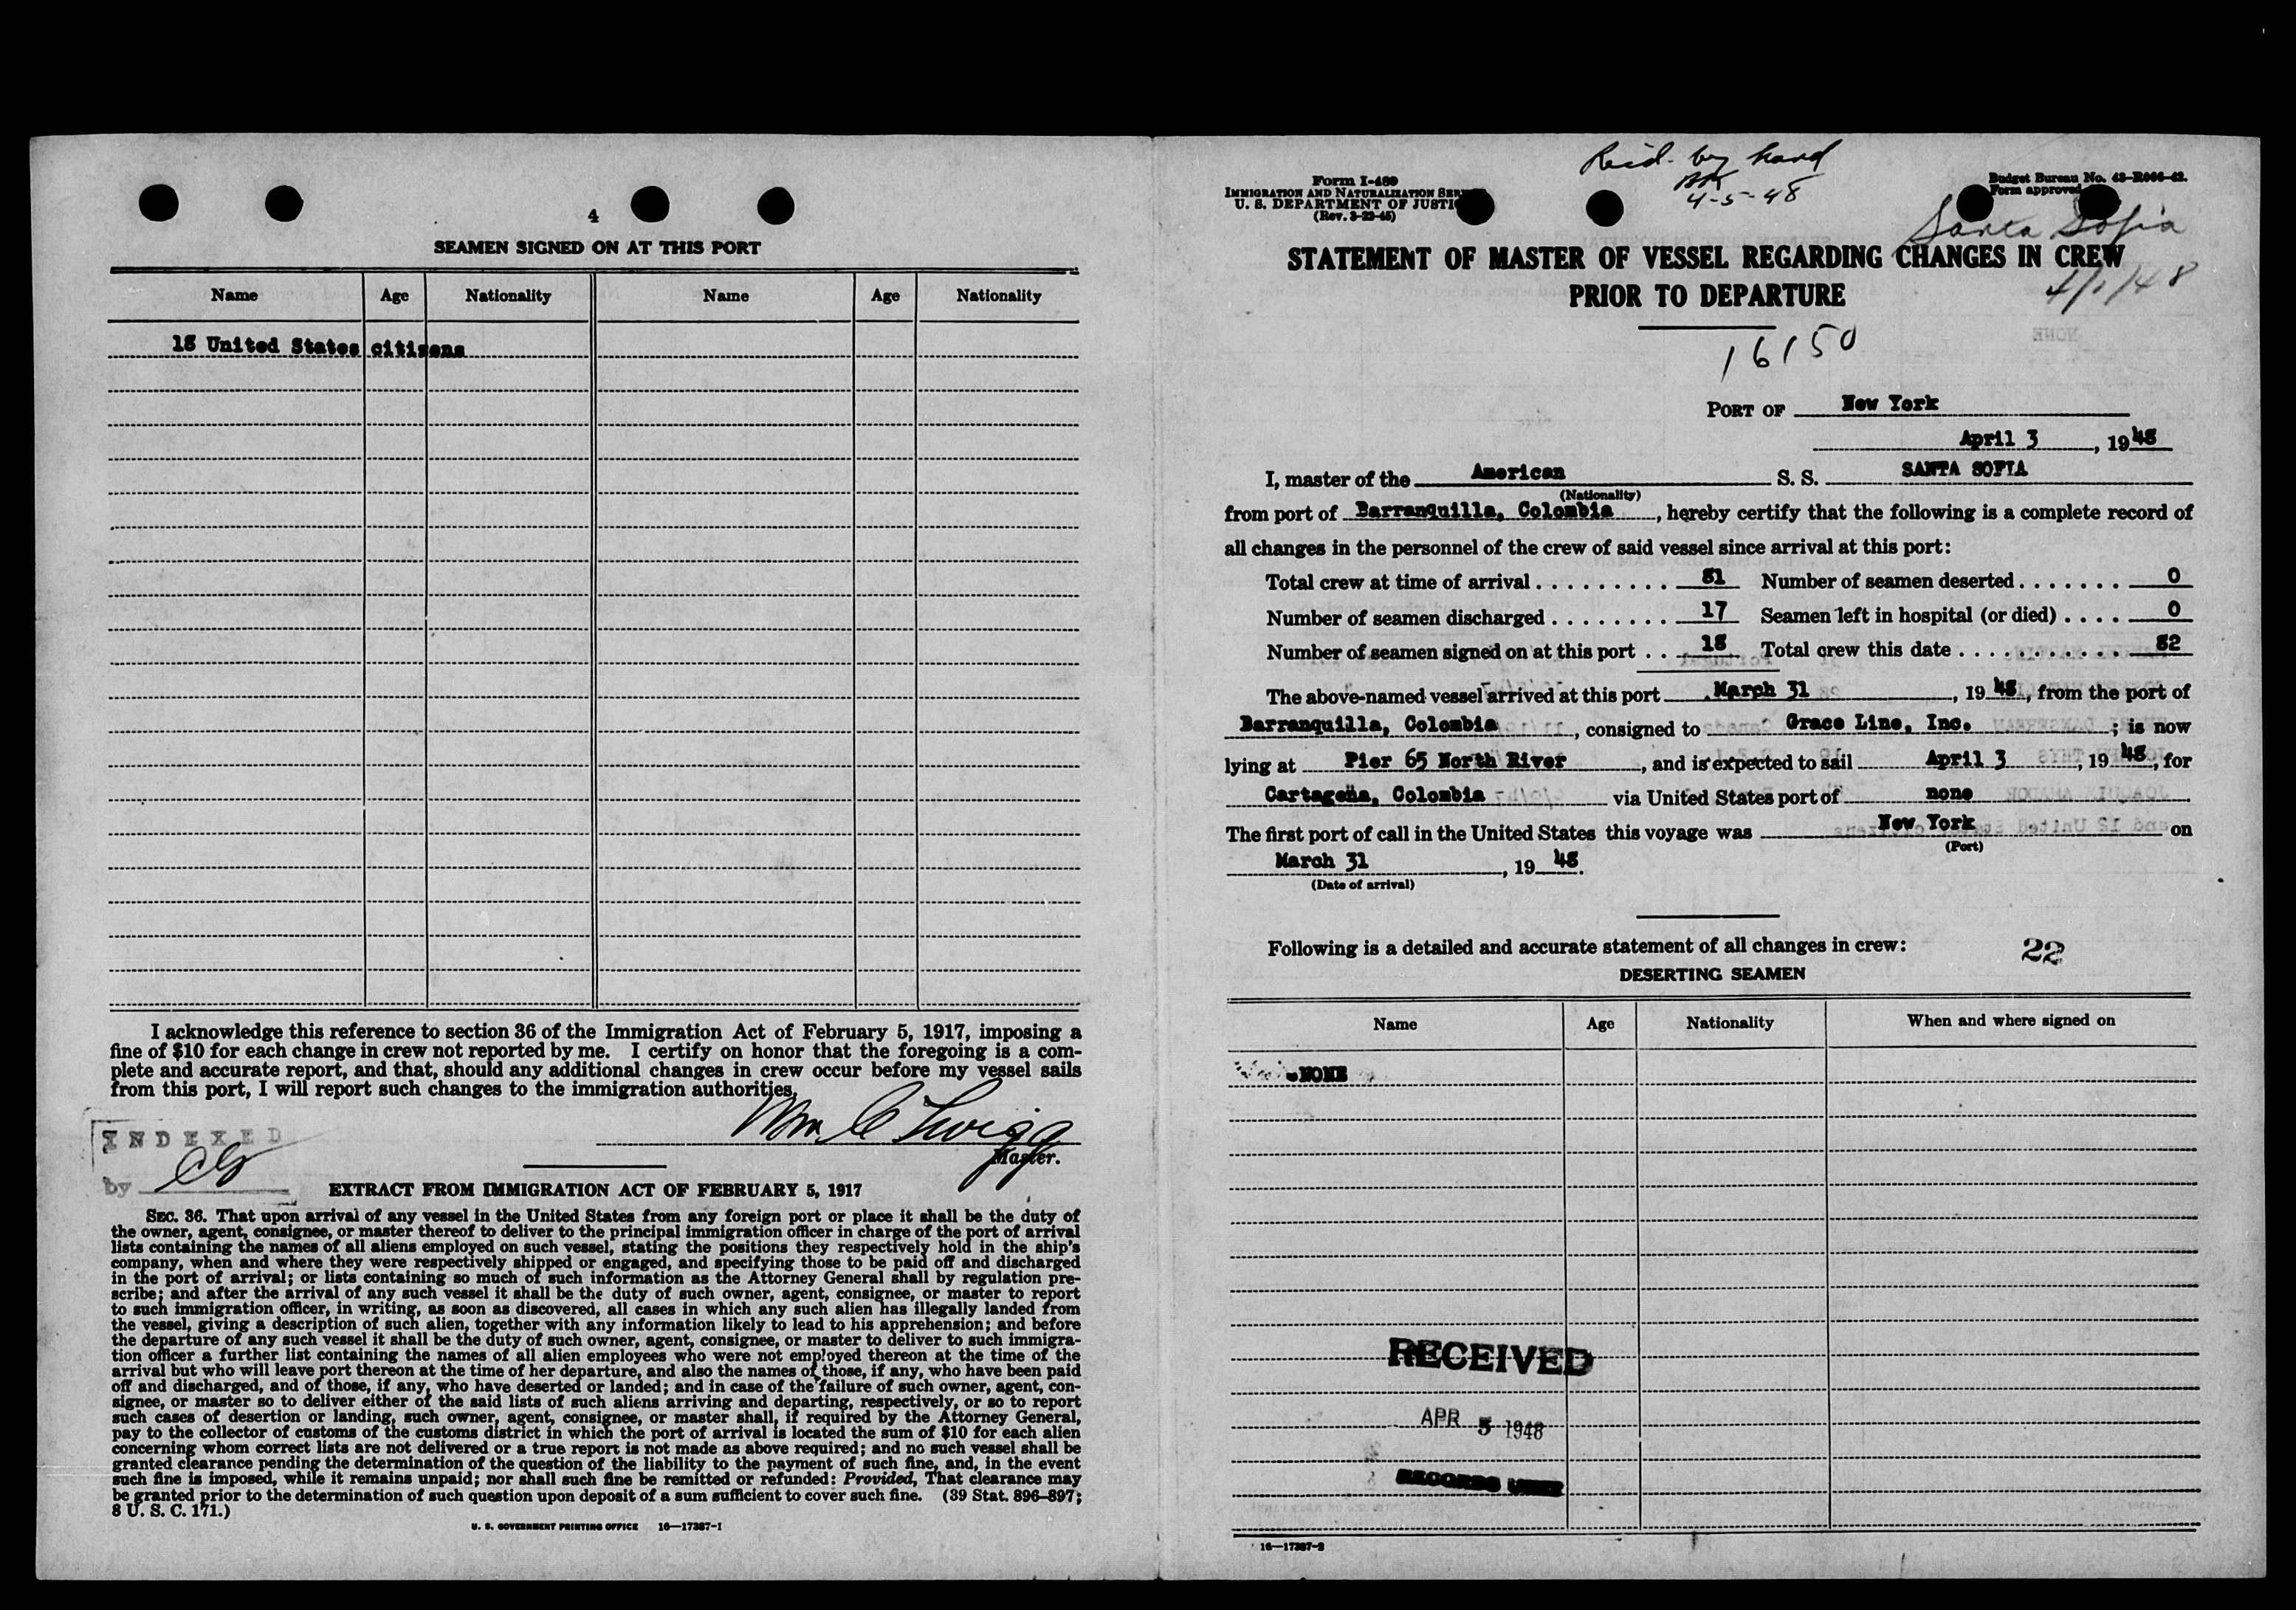 4
SEAMEN SIGNED ON AT THIS PORT
Name Age Nationality Name Age Nationality
18 United States citizens
I acknowledge this reference to section 36 of the Immigration Act of February 5, 1917, imposing a
fine of $10 for each change in crew not reported by me. I certify on honor that the foregoing is a com-
plete and accurate report, and that, should any additional changes in crew occur before my vessel sails
from this port, I will report such changes to the immigration authorities.
Wm C Twigg
Master.
INDEXED
by
EXTRACT FROM IMMIGRATION ACT OF FEBRUARY 5, 1917
SEC. 36. That upon arrival of any vessel in the United States from any foreign port or place it shall be the duty of
the owner, agent, consignee, or master thereof to deliver to the principal immigration officer in charge of the port of arrival
lists containing the names of all aliens employed on such vessel, stating the positions they respectively hold in the ship's
company, when and where they were respectively shipped or engaged, and specifying those to be paid off and discharged
in the port of arrival; or lists containing so much of such information as the Attorney General shall by regulation pre-
scribe; and after the arrival of any such vessel it shall be the duty of such owner, agent, consignee, or master to report
to such immigration officer, in writing, as soon as discovered, all cases in which any such alien has illegally landed from
the vessel, giving a description of such alien, together with any information likely to lead to his apprehension; and before
the departure of any such vessel it shall be the duty of such owner, agent, consignee, or master to deliver to such immigra-
tion officer a further list containing the names of all alien employees who were not employed thereon at the time of the
arrival but who will leave port thereon at the time of her departure, and also the names of those, if any, who have been paid
off and discharged, and of those, if any, who have deserted or landed; and in case of the failure of such owner, agent, con-
signee, or master so to deliver either of the said lists of such aliens arriving and departing, respectively, or so to report
such cases of desertion or landing, such owner, agent, consignee, or master shall, if required by the Attorney General,
pay to the collector of customs of the customs district in which the port of arrival is located the sum of $10 for each alien
concerning whom correct lists are not delivered or a true report is not made as above required; and no such vessel shall be
granted clearance pending the determination of the question of the liability to the payment of such fine, and, in the event
such fine is imposed, while it remains unpaid; nor shall such fine be remitted or refunded: Provided, That clearance may
be granted prior to the determination of such question upon deposit of a sum sufficient to cover such fine. (39 Stat. 896–897;
8 U. S. C. 171.)
U. S. GOVERNMENT PRINTING OFFICE 16—17387-1
Form I-489
IMMIGRATION AND NATURALIZATION
U. S. DEPARTMENT OF
(Rev. 3-22-45)
Rec'd. by hand
4-5-48
Budget Bureau No. 43-R066-42.
Form approved
Santa Sofia
4/1/48
STATEMENT OF MASTER OF VESSEL REGARDING CHANGES IN CREW
PRIOR TO DEPARTURE
16150
PORT OF New York
April 3, 1948
I, master of the American S. S. SANTA SOFIA
(Nationality)
from port of Barranquilla, Colombia, hereby certify that the following is a complete record of
all changes in the personnel of the crew of said vessel since arrival at this port:
Total crew at time of arrival 81 Number of seamen deserted 0
Number of seamen discharged 17 Seamen left in hospital (or died) 0
Number of seamen signed on at this port 18 Total crew this date 82
The above-named vessel arrived at this port March 31, 1948, from the port of
Barranquilla, Colombia, consigned to Grace Line, Inc.; is now
lying at Pier 65 North River, and is expected to sail April 3, 1948, for
Cartagena, Colombia via United States port of none
The first port of call in the United States this voyage was New York on
(Port)
March 31, 1948.
(Date of arrival)
Following is a detailed and accurate statement of all changes in crew: 22
DESERTING SEAMEN
Name Age Nationality When and where signed on
-NONE
RECEIVED
APR 5 1948
RECORDS UNIT
16—17387-2